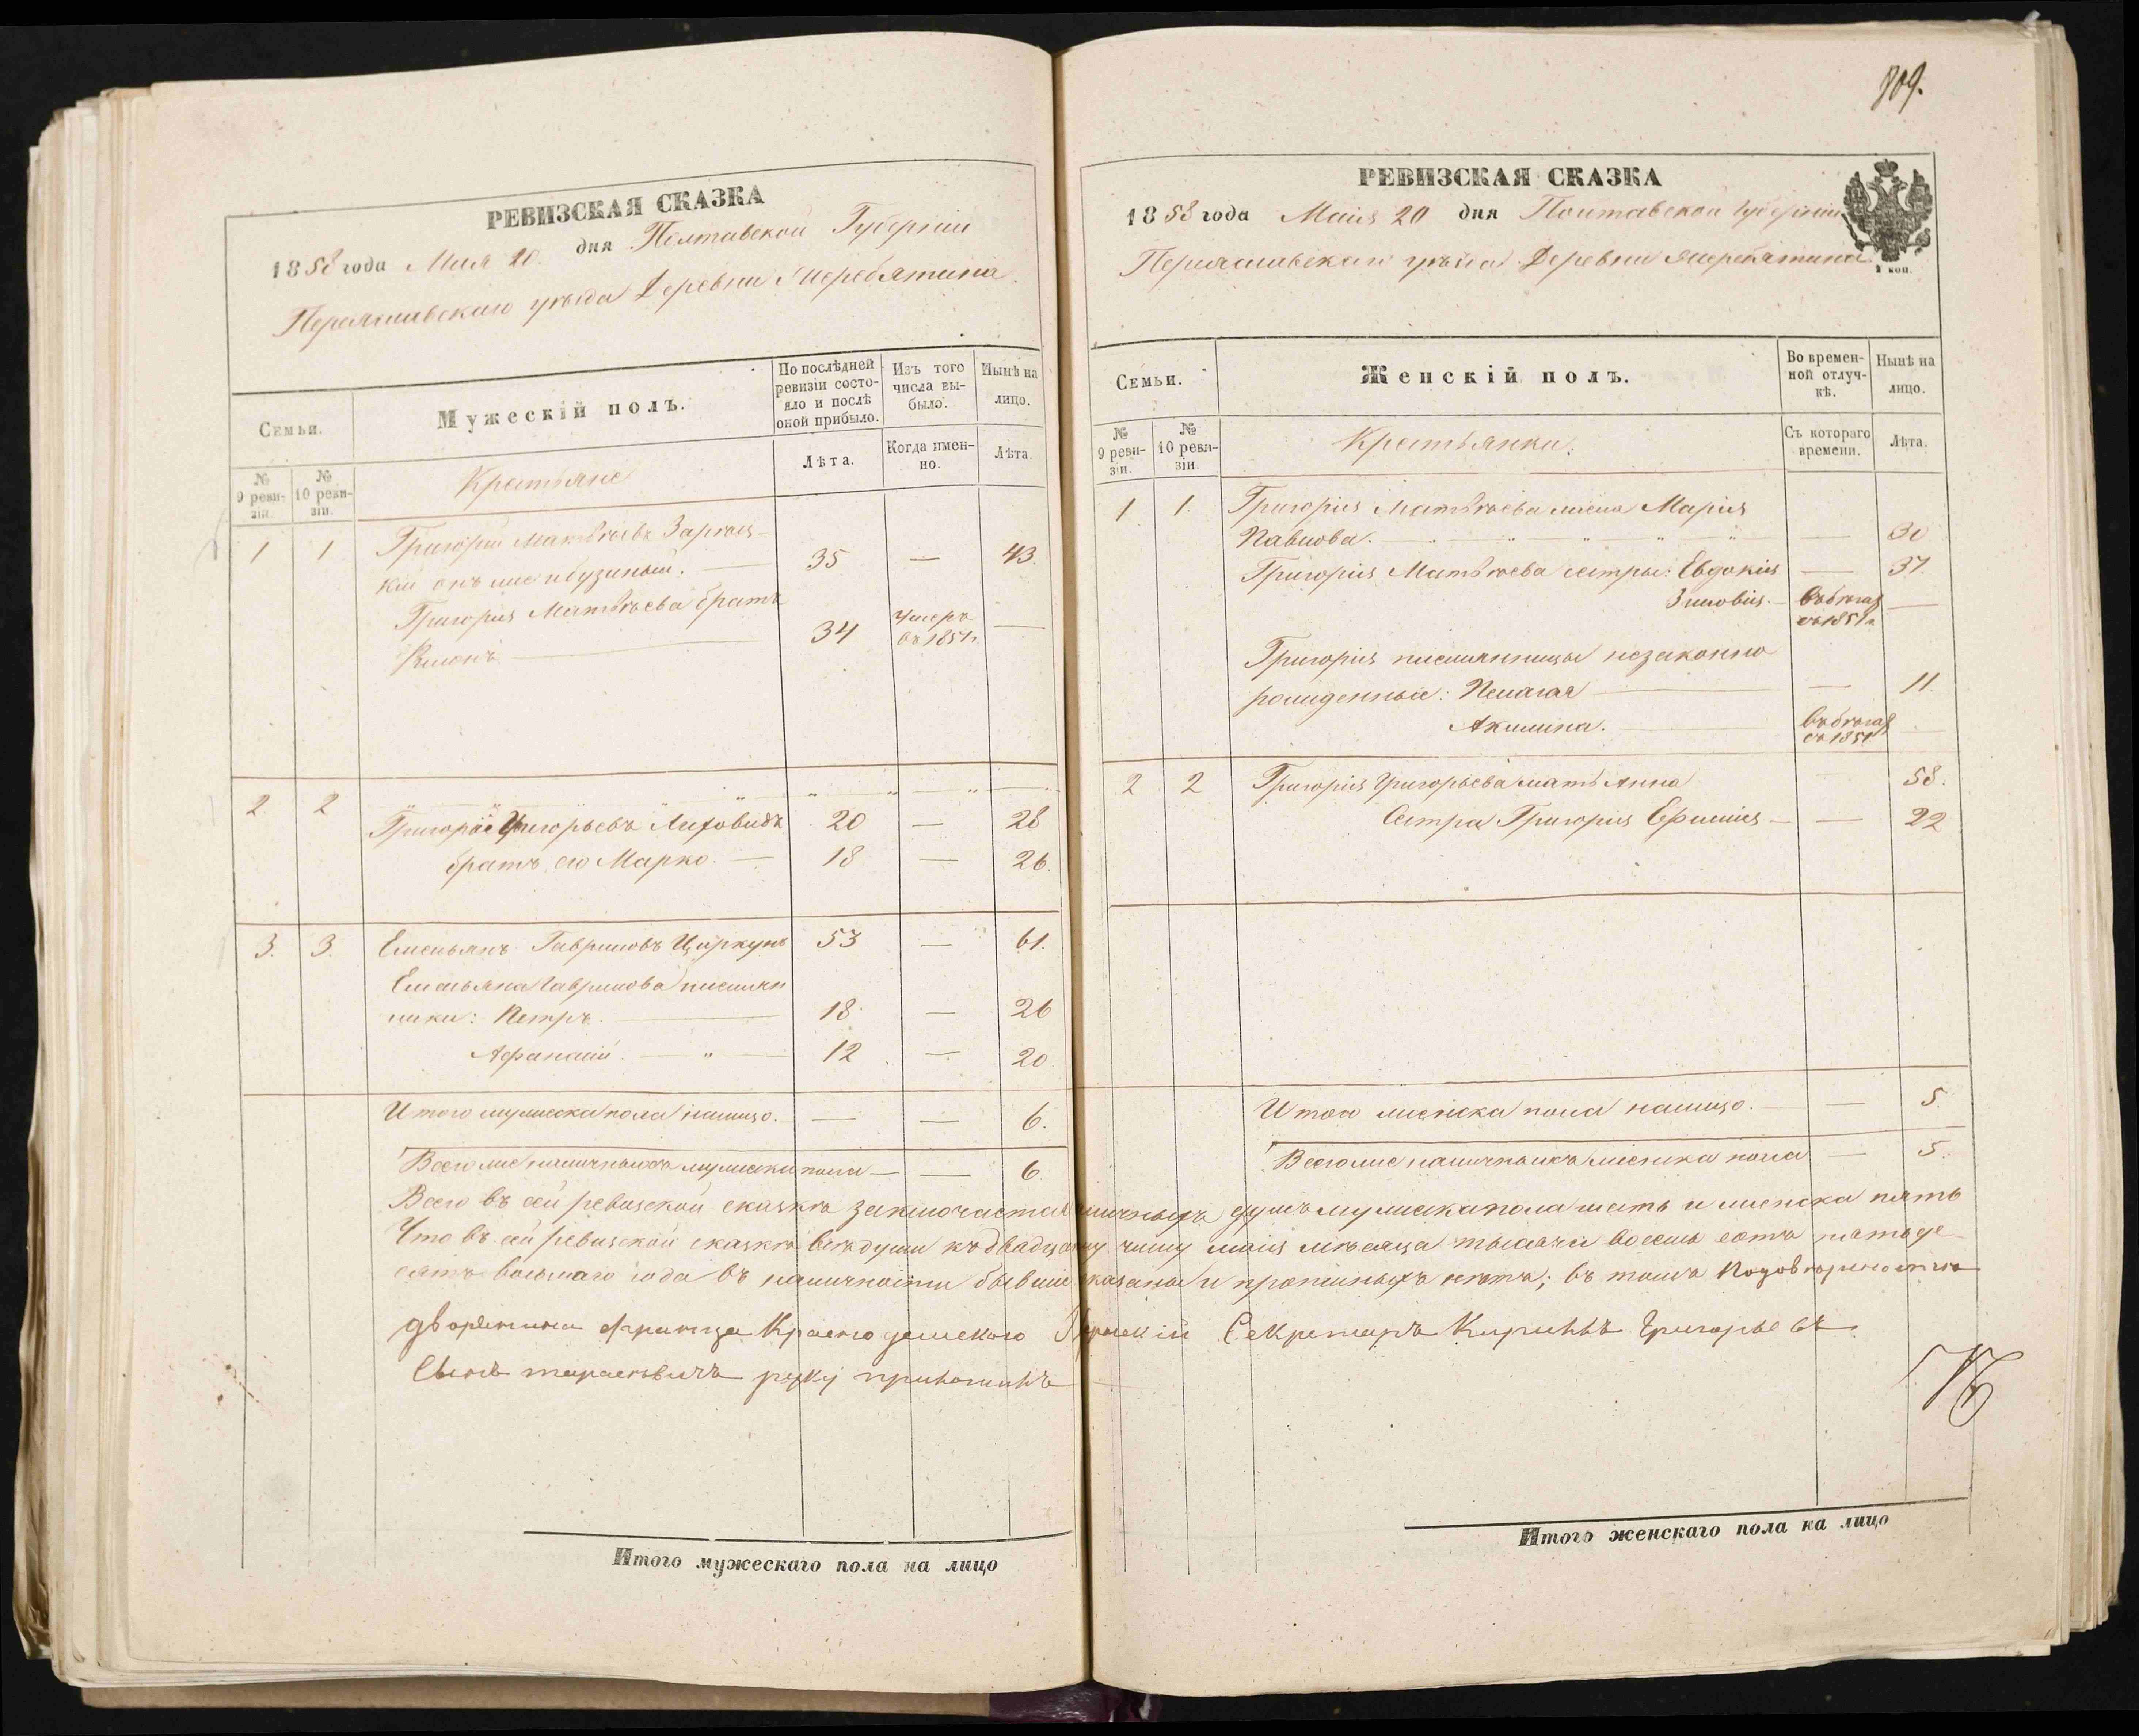 РЕВИЗСКАЯ СКАЗКА
1858 года Мая 20 дня Полтавской Губерніи
Переяславскаго уѣзда Деревни Жеребятина
Семьи.
Мужескій полъ.
По послѣдней ревизіи состояло и послѣ оной прибыло.
Изъ того числа выбыло.
Нынѣ на лицо.
№ 9 ревизіи.
№ 10 ревизіи.
Крестьяне
Лѣта.
Когда именно.
Лѣта.
1 1 Григорій Матвѣевъ
кій онъ же 35 — 43
Григорія Матвѣева братъ
34 умеръ въ 1851 г. —
2 2
Григорій Григорьевъ Лиховидъ 20 — 28
братъ его Марко — 18 — 26
3. 3. Емельянъ Гавриловъ Цюркунъ 53 — 61.
Емельяна Гаврилова племян
ники: Петръ. — 18 — 26
Афанасій. — " — 12 — 20
Итого мужеска пола налицо. — — 6.
Всего же наличныхъ мужеска пола — — 6.
809.
РЕВИЗСКАЯ СКАЗКА
1858 года Маія 20 дня Полтавской Губерніи
Переяславскаго уѣзда Деревни Жеребятина
1 коп.
Семьи.
Женскій полъ.
Во временной отлучкѣ.
Нынѣ на лицо.
№ 9 ревизіи.
№ 10 ревизіи.
Крестьянки.
Съ котораго времени.
Лѣта.
1 1. Григорія Матвѣева жена Марія
Павлова. — 30
Григорія Матвѣева сестры: Евдокія — 37.
Зиновія. — въ бѣгах съ 1851 г —
Григорія племянницы незаконно
рожденные: Пелагея — 11.
Акилина. — въ бѣгах съ 1851
2 2 Григорія Григорьева мать Анна 58.
Сестра Григорія Ефимія — — 22
Итого женска пола налицо. — 5.
Всего же наличныхъ женска пола — 5.
Всего въ сей ревизской сказкѣ заключается наличныхъ душъ мужеска пола шесть и женска пять
Что въ сей ревизской сказкѣ всѣ души къ двадцатому числу маія мѣсяца тысяча восемь сотъ пятьде
сятъ восьмаго года въ наличности бывшіе показаны и прописныхъ нѣтъ; въ томъ по довѣренности
дворянина Франца Секретарь Кирилъ Григорьевъ
Сынъ Тарасевичъ руку приложилъ
Итого мужескаго пола на лицо
Итого женскаго пола на лицо